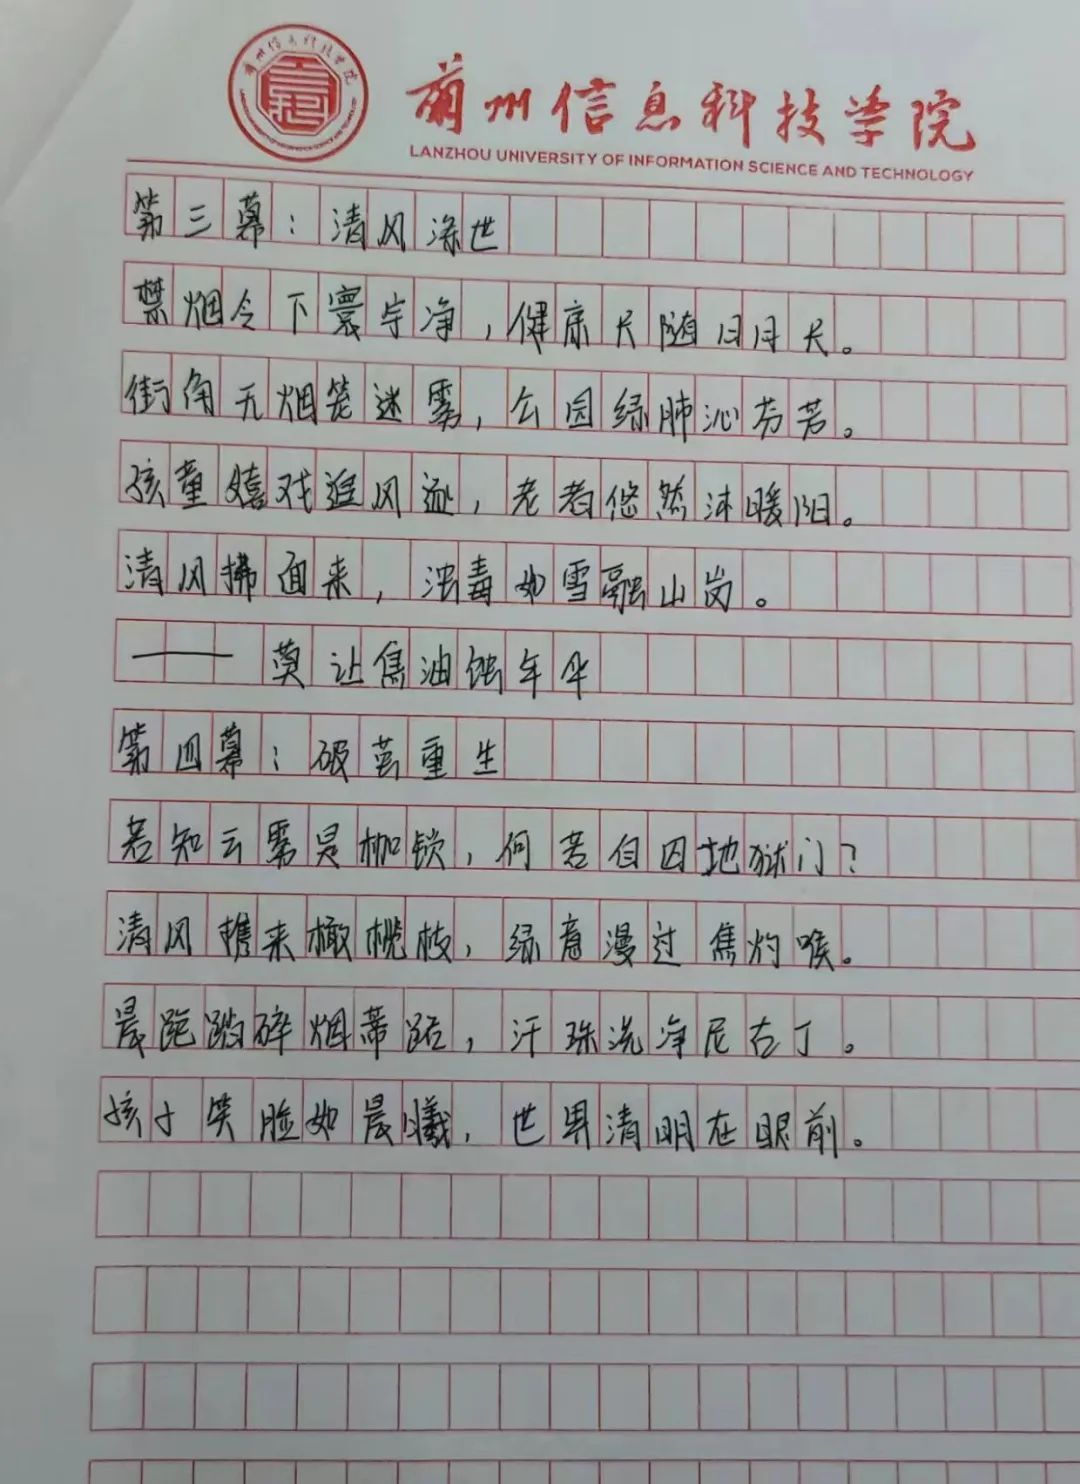 兰州信息科技学院
LANZHOU UNIVERSITY OF INFORMATION SCIENCE AND TECHNOLOGY
第三幕：清风涤世
禁烟令下寰宇净，健康长随日月长。
街角无烟笼迷雾，公园绿肺沁芬芳。
孩童嬉戏追风逝，老者悠然沐暖阳。
清风拂面来，浊毒如雪融山岗。
——莫让焦油蚀年华
第四幕：破茧重生
若知云雾是枷锁，何苦自囚地狱门？
清风携来橄榄枝，绿意漫过焦灼喉。
晨跑踏碎烟蒂路，汗珠洗净尼古丁。
孩子笑脸如晨曦，世界清明在眼前。